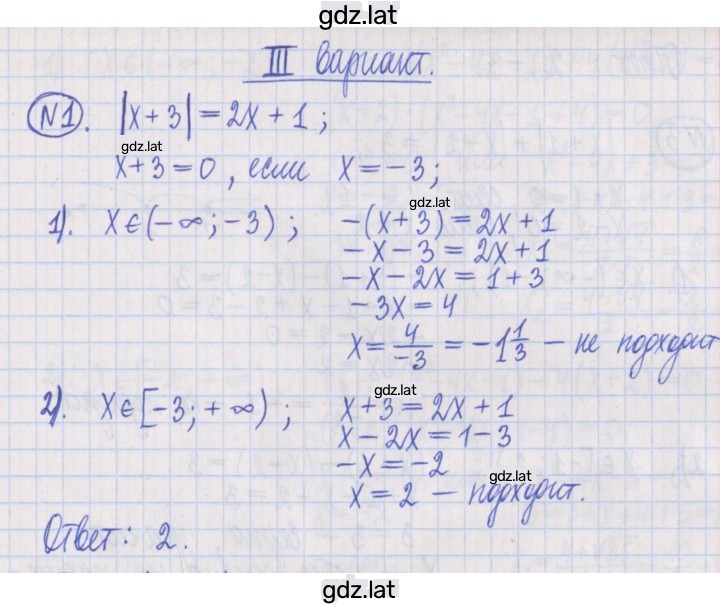 gdz.lat
III вариант.
№1. |x+3| = 2x+1;
gdz.lat
x+3=0, если x=-3;
gdz.lat
1). x∈(-∞;-3); -(x+3)=2x+1
-x-3=2x+1
-x-2x=1+3
-3x=4
x=4/-3=-1 1/3 - не подходит
gdz.lat
2). x∈[-3;+∞); x+3=2x+1
x-2x=1-3
-x=-2
gdz.lat
x=2 - подходит.
Ответ: 2.
gdz.lat